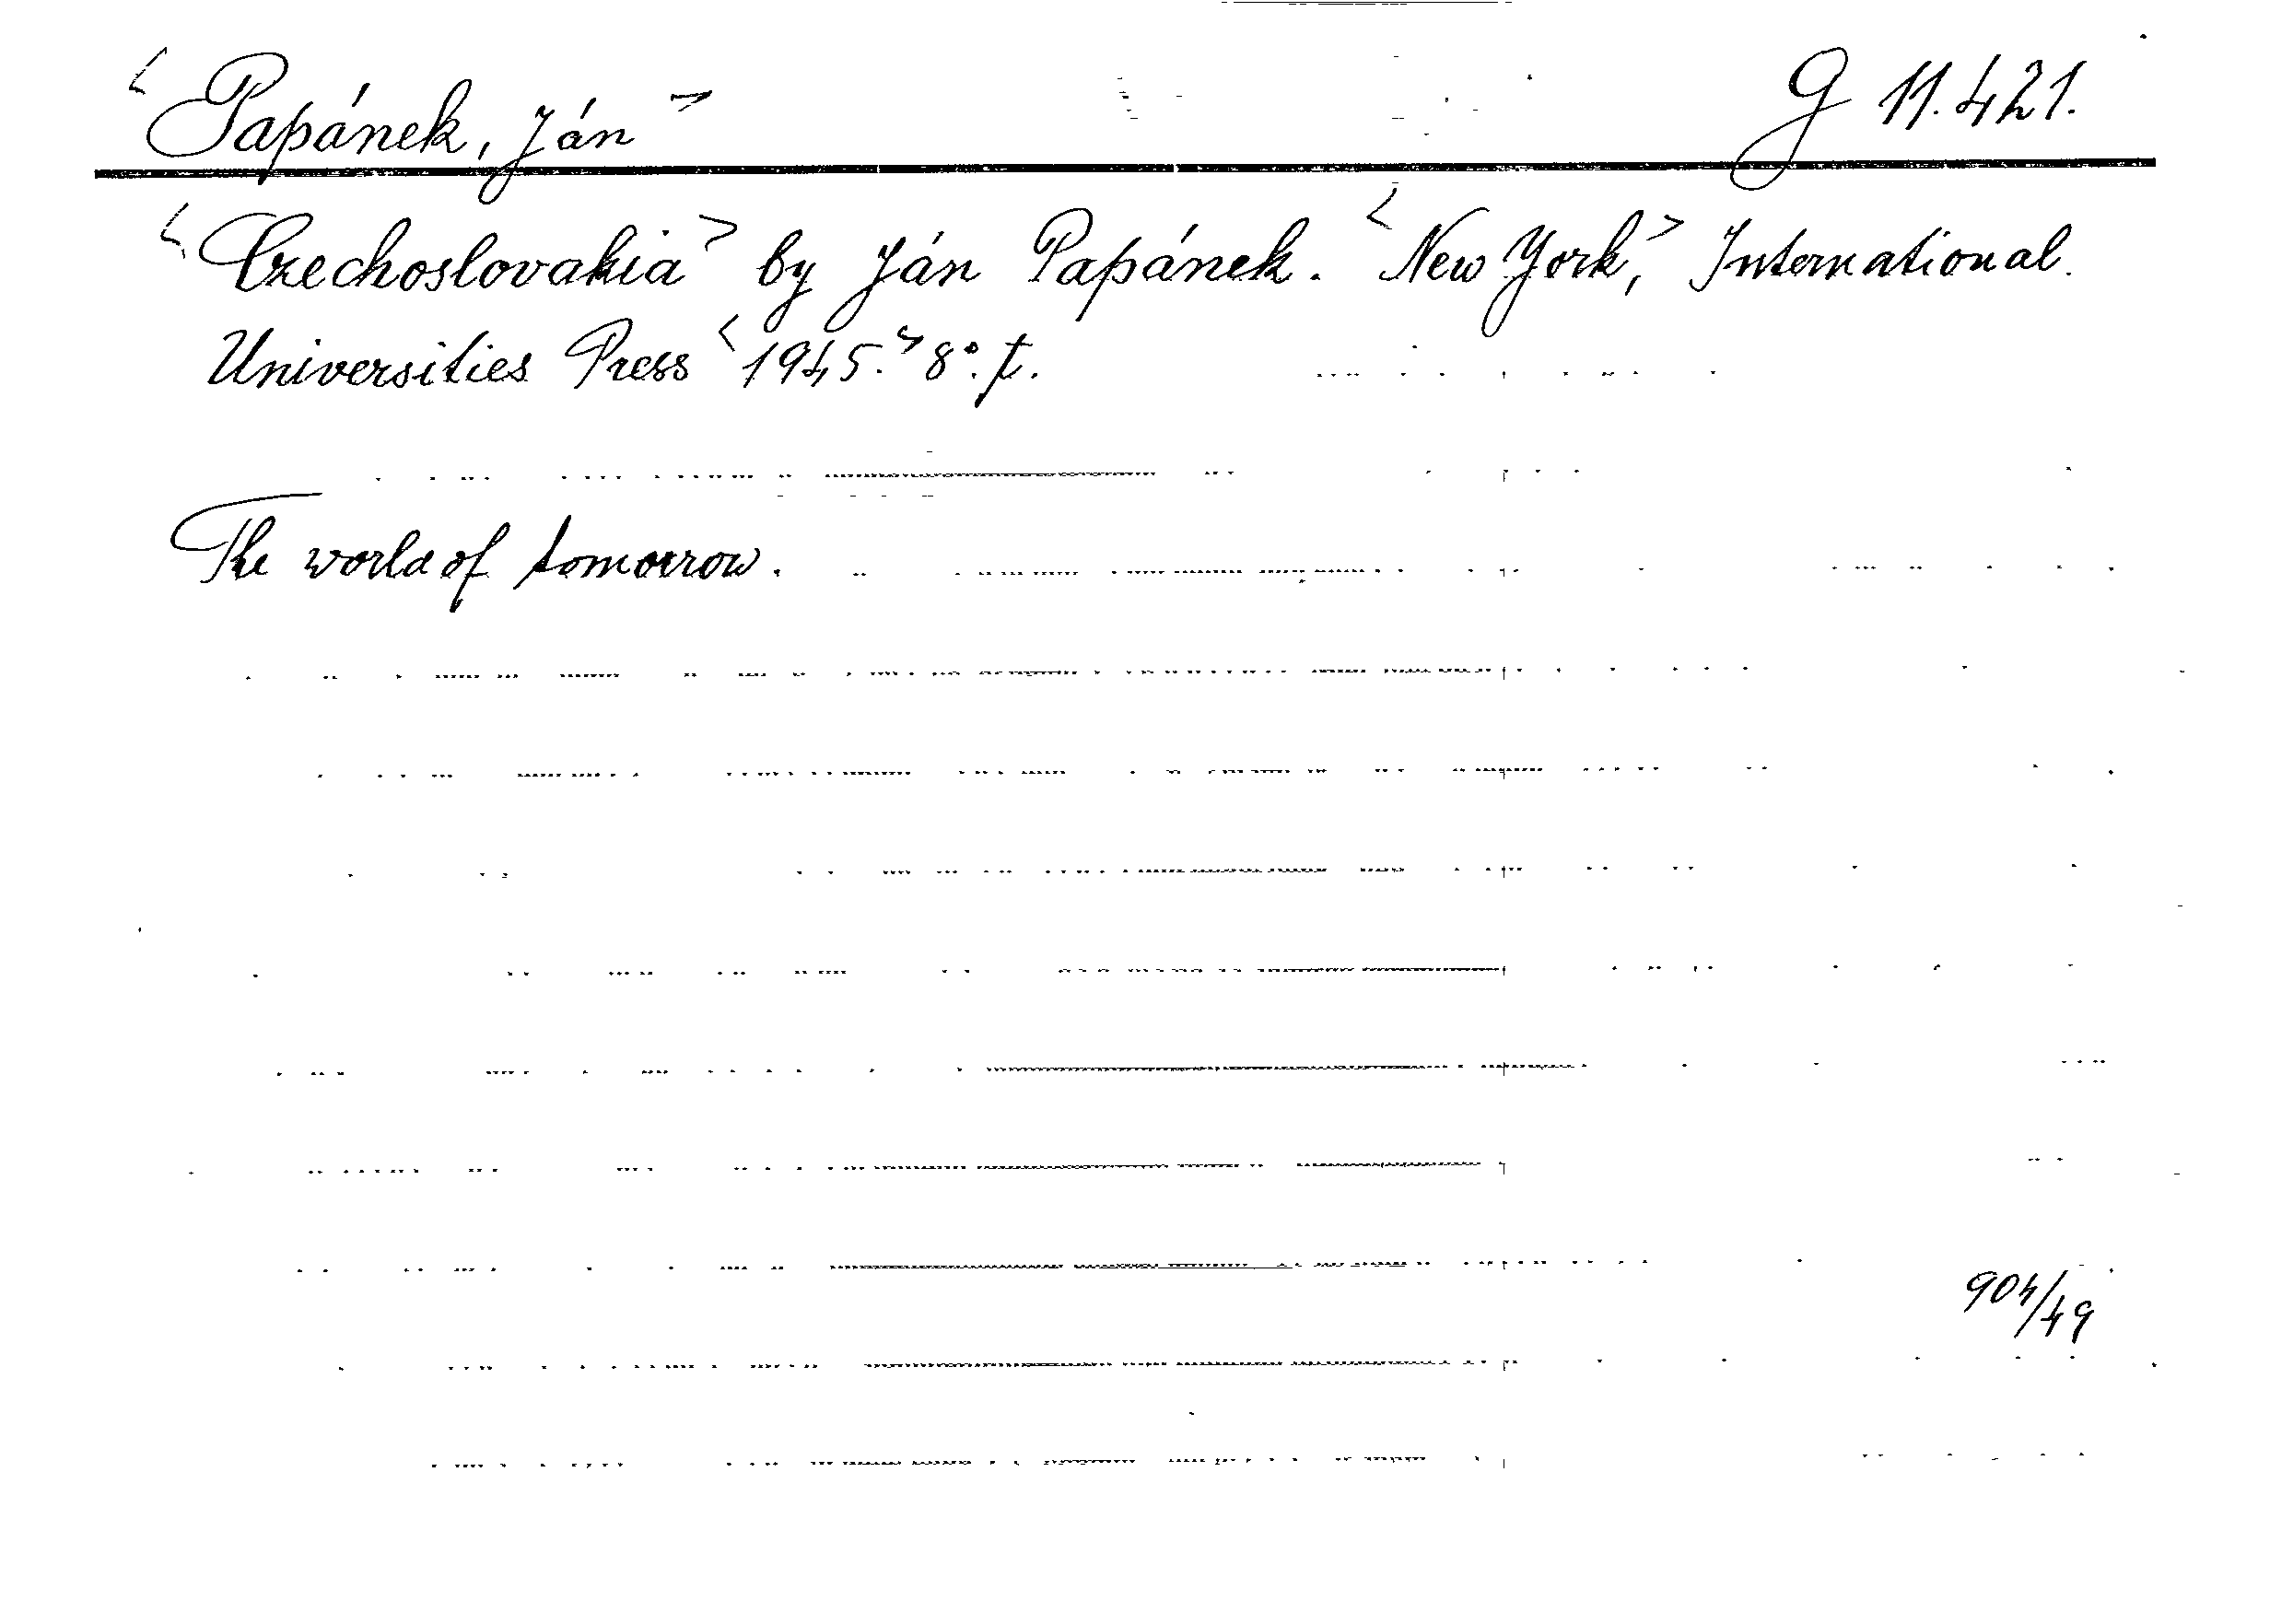 <Papánek, Ján> G 11.421.
<Czechoslovakia> by Ján Papánek. <New York,> International
Universities Press <1945.> 8°. t.
The world of tomorrow.
904/49